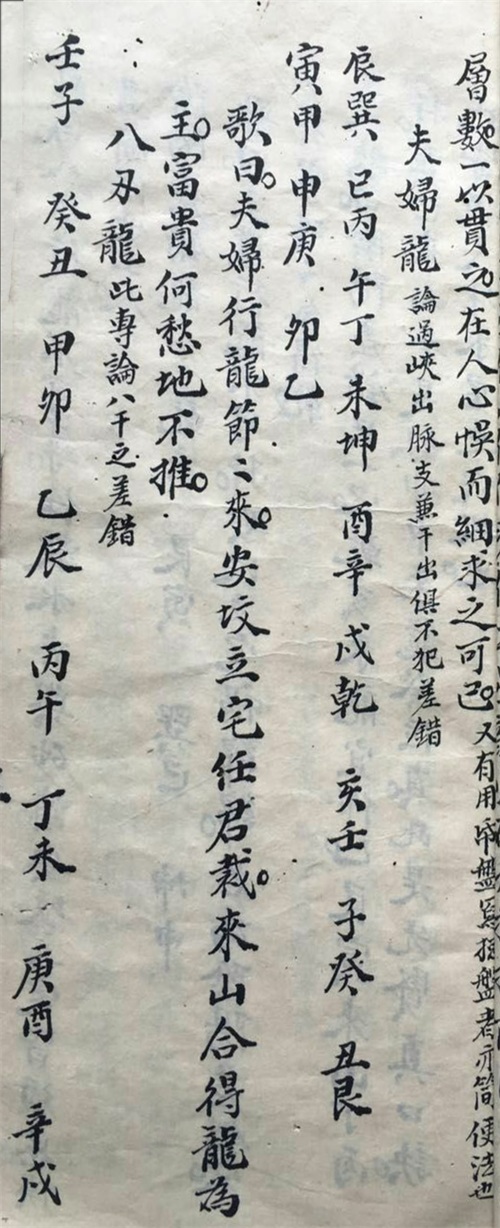 層數一以貫之在人心悞而細求之可已。又有用第盤為指盤者亦簡便法也
夫婦龍 論過峽出脉支兼干出俱不犯差錯
辰巽 巳丙 午丁 未坤 酉辛 戌乾 亥壬 子癸 丑艮
寅甲 申庚 卯乙
歌曰。夫婦行龍節〻來。安坟立宅任君裁。來山合得龍為
主。富貴何愁地不推。
八刃龍 此專論八干之差錯
壬子 癸丑 甲卯 乙辰 丙午 丁未 庚酉 辛戌